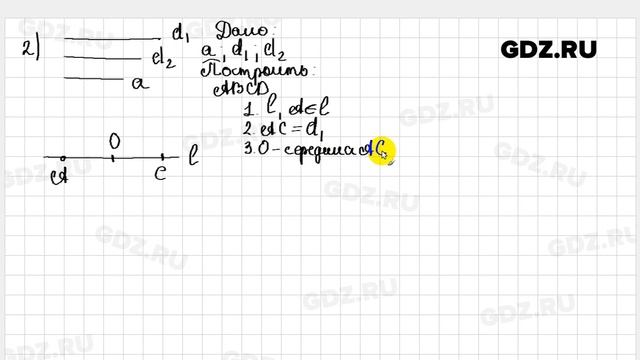 2)
d₁
d₂
a
Дано:
a; d₁; d₂
Построить:
ABCD
1. l, A∈l
2. AC = d₁
3. O – середина AC,
A O C l
GDZ.RU
GDZ.RU
GDZ.RU
GDZ.RU
GDZ.RU
GDZ.RU
GDZ.RU
GDZ.RU
GDZ.RU
GDZ.RU